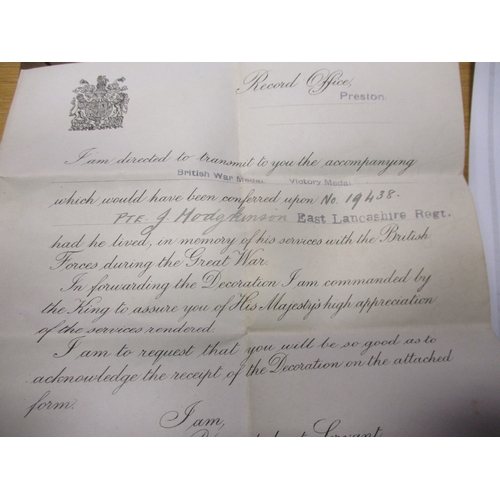 Record Office,
Preston.
I am directed to transmit to you the accompanying
British War Medal Victory Medal
which would have been conferred upon No. 19438.
PTE. J. Hodgkinson East Lancashire Regt.
had he lived, in memory of his services with the British
Forces during the Great War.
In forwarding the Decoration I am commanded by
the King to assure you of His Majesty's high appreciation
of the services rendered.
I am to request that you will be so good as to
acknowledge the receipt of the Decoration on the attached
form.
I am,
Servant